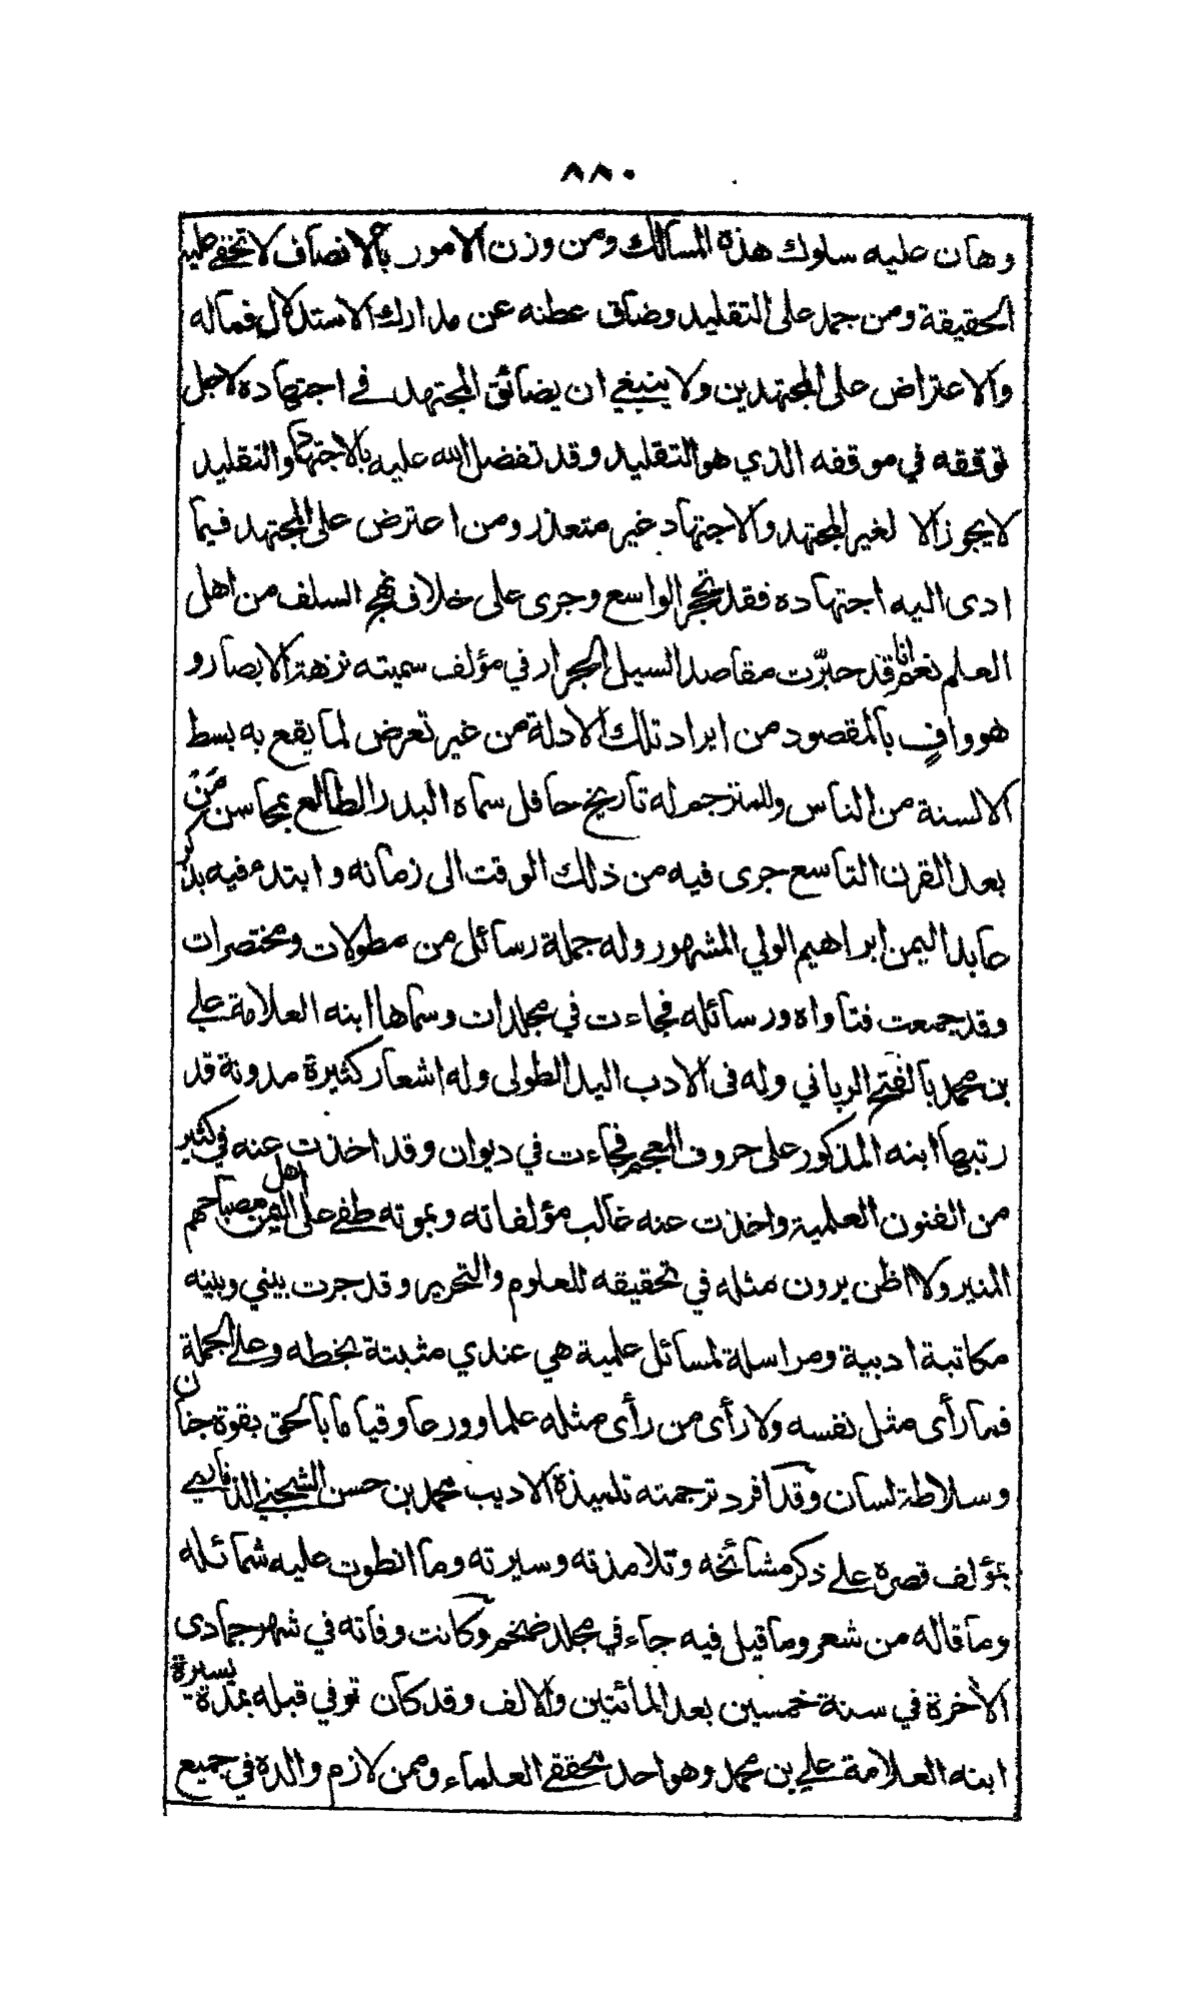 ٨٨٠
وهان عليه سلوك هذه المسالك ومن وزن الامور بالانصاف لا تخفى عليه
الحقيقة ومن جمد على التقليد وضاق عطنه عن مدارك الاستدلال فماله
والاعتراض على المجتهدين ولا ينبغي ان يضائق المجتهد في اجتهاده لاجل
توقفه في موقفه الذي هو التقليد وقد تفضل الله عليه بالاجتهاد والتقليد
لا يجوز الا لغير المجتهد والاجتهاد غير متعذر ومن اعترض على المجتهد فيما
ادى اليه اجتهاده فقد تحجر الواسع وجرى على خلاف نهج السلف من اهل
العلم نعم انا قد حبّرت مقاصد السيل الجرار في مؤلف سميته نزهة الابصار و
هو وافٍ بالمقصود من ايراد تلك الادلة من غير تعرض لما يقع به بسط
الالسنة من الناس وللمترجم له تاريخ حافل سماه البدر الطالع بمحاسن مَنْ
بعد القرن التاسع جرى فيه من ذلك الوقت الى زمانه وابتدء فيه بذكر
عابد اليمن ابراهيم الولي المشهور وله جملة رسائل من مطولات ومختصرات
وقد جمعت فتاواه ورسائله فجاءت في مجلدات وسماها ابنه العلامة علي
بن محمد بالفتح الرباني وله فى الادب اليد الطولى وله اشعار كثيرة مدونة قد
رتبها ابنه المذكور على حروف المعجم فجاءت في ديوان وقد اخذت عنه في كثير
من الفنون العلمية واخذت عنه غالب مؤلفاته وبموته طفي على اهل اليمن مصباحهم
المنير ولا اظن يرون مثله في تحقيقه للعلوم والتحرير وقد جرت بيني وبينه
مكاتبة ادبية ومراسلة لمسائل علمية هي عندي مثبتة بخطه وعلى الجملة
فما رأى مثل نفسه ولا رأى من رأى مثله علما وورعا وقياما بالحق بقوة جنان
وسلاطة لسان وقد افرد ترجمته تلميذه الاديب محمد بن حسن الشجني الذماري
بمؤلف قصره على ذكر مشائخه وتلامذته وسيرته وما انطوت عليه شمائله
وما قاله من شعر وما قيل فيه جاء في مجلد ضخم وكانت وفاته في شهر جمادى
الاخرة في سنة خمسين بعد المائتين والالف وقد كان توفي قبله بمدة يسيرة
ابنه العلامة علي بن محمد وهو احد محققي العلماء وممن لازم والده في جميع